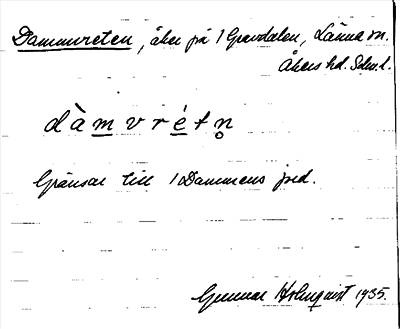 Dammvreten, åker på 1 Gravdalen, Länna sn.
Åkers hd. Sdm. l.
dàmvrétn̥
Gränsar till 1 Dammens jord.
Gunnar Holmquist 1935.